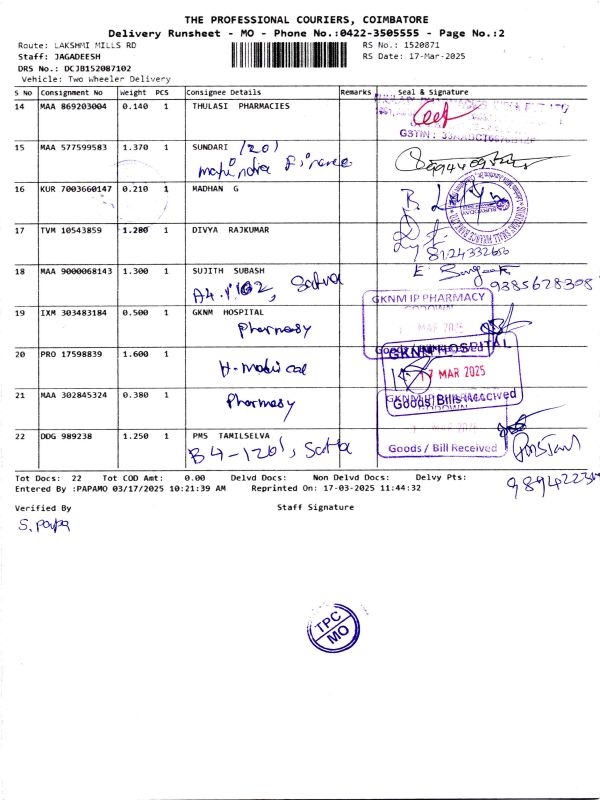 THE PROFESSIONAL COURIERS, COIMBATORE
Delivery Runsheet - MO - Phone No.:0422-3505555 - Page No.:2
Route: LAKSHMI MILLS RD
RS No.: 1520871
Staff: JAGADEESH
RS Date: 17-Mar-2025
DRS No.: DCJB152087102
Vehicle: Two Wheeler Delivery
S No Consignment No Weight PCS Consignee Details Remarks Seal & Signature
14 MAA 869203004 0.140 1 THULASI PHARMACIES
GSTIN :
15 MAA 577599583 1.370 1 SUNDARI (20)
16 KUR 7003660147 0.210 1 MADHAN G
17 TVM 10543859 1.280 1 DIVYA RAJKUMAR
8124332656
18 MAA 9000068143 1.300 1 SUJITH SUBASH
9385628308
19 IXM 303483184 0.500 1 GKNM HOSPITAL
Pharmasy
GKNM IP PHARMACY
MAR 2025
20 PRO 17598839 1.600 1
GKNM HOSPITAL
17 MAR 2025
Goods/Bills Received
21 MAA 302845324 0.380 1
Pharmasy
22 DDG 989238 1.250 1 PMS TAMILSELVA
Goods / Bill Received
Tot Docs: 22 Tot COD Amt: 0.00 Delvd Docs: Non Delvd Docs: Delvy Pts:
Entered By :PAPAMO 03/17/2025 10:21:39 AM Reprinted On: 17-03-2025 11:44:32
Verified By
Staff Signature
S. Papa
TPC
MO